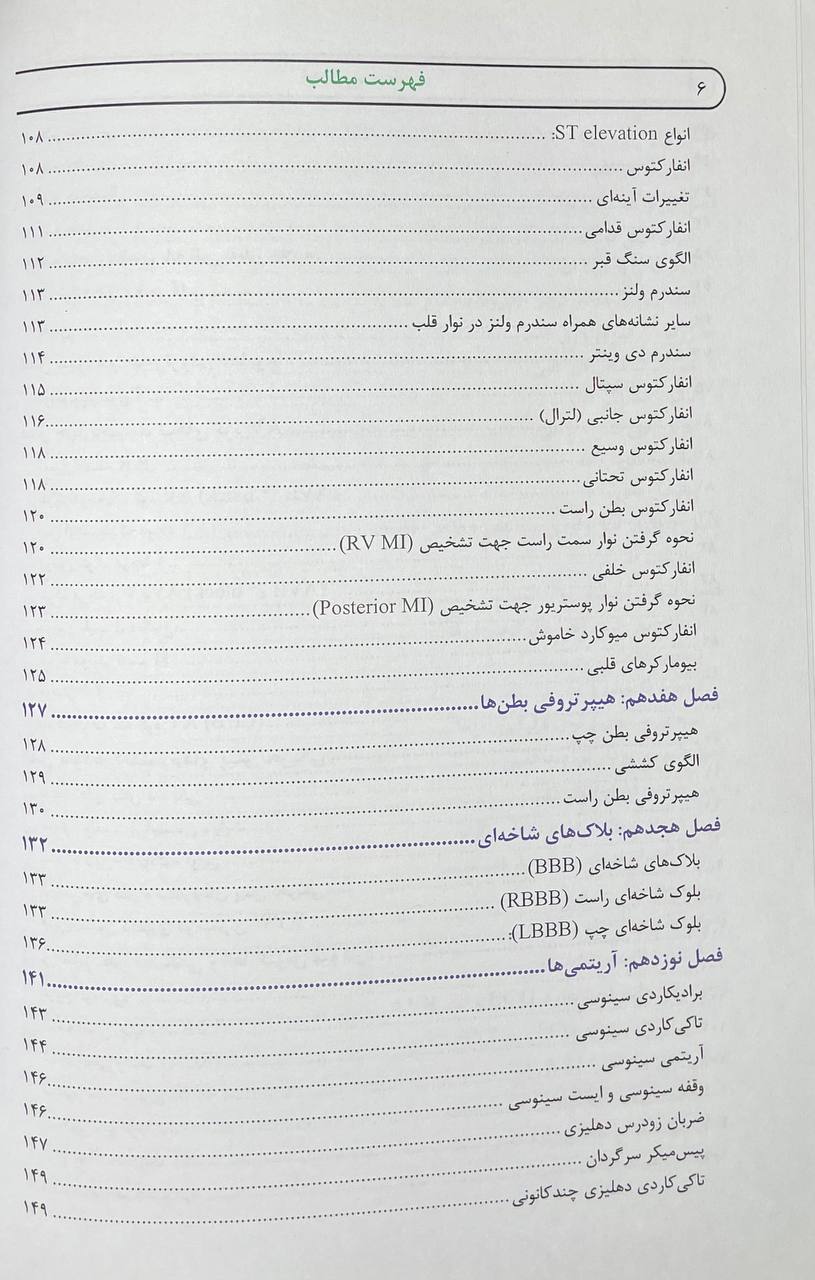 ۶
فهرست مطالب
انواع ST elevation: ........ ۱۰۸
انفارکتوس ........ ۱۰۸
تغییرات آینه‌ای ........ ۱۰۹
انفارکتوس قدامی ........ ۱۱۱
الگوی سنگ قبر ........ ۱۱۲
سندرم ولنز ........ ۱۱۳
سایر نشانه‌های همراه سندرم ولنز در نوار قلب ........ ۱۱۳
سندرم دی وینتر ........ ۱۱۴
انفارکتوس سپتال ........ ۱۱۵
انفارکتوس جانبی (لترال) ........ ۱۱۶
انفارکتوس وسیع ........ ۱۱۸
انفارکتوس تحتانی ........ ۱۱۸
انفارکتوس بطن راست ........ ۱۲۰
نحوه گرفتن نوار سمت راست جهت تشخیص (RV MI) ........ ۱۲۰
انفارکتوس خلفی ........ ۱۲۲
نحوه گرفتن نوار پوستریور جهت تشخیص (Posterior MI) ........ ۱۲۳
انفارکتوس میوکارد خاموش ........ ۱۲۴
بیومارکرهای قلبی ........ ۱۲۵
فصل هفدهم: هیپرتروفی بطن‌ها ........ ۱۲۷
هیپرتروفی بطن چپ ........ ۱۲۸
الگوی کششی ........ ۱۲۹
هیپرتروفی بطن راست ........ ۱۳۰
فصل هجدهم: بلاک‌های شاخه‌ای ........ ۱۳۲
بلاک‌های شاخه‌ای (BBB) ........ ۱۳۳
بلوک شاخه‌ای راست (RBBB) ........ ۱۳۳
بلوک شاخه‌ای چپ (LBBB): ........ ۱۳۶
فصل نوزدهم: آریتمی‌ها ........ ۱۴۱
برادیکاردی سینوسی ........ ۱۴۳
تاکی‌کاردی سینوسی ........ ۱۴۴
آریتمی سینوسی ........ ۱۴۶
وقفه سینوسی و ایست سینوسی ........ ۱۴۶
ضربان زودرس دهلیزی ........ ۱۴۷
پیس‌میکر سرگردان ........ ۱۴۹
تاکی‌کاردی دهلیزی چندکانونی ........ ۱۴۹